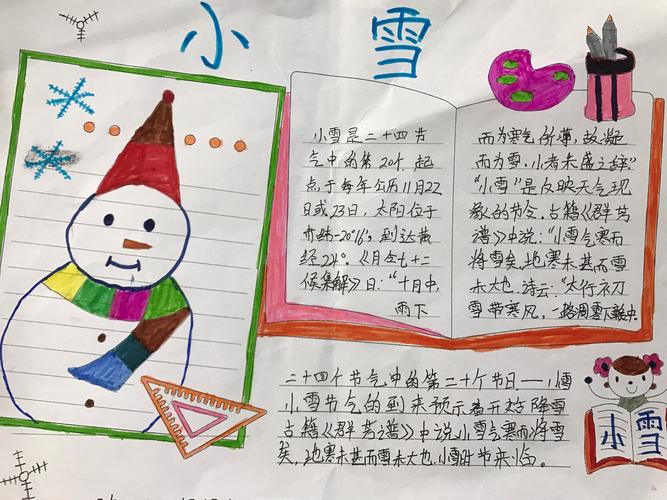 小雪
小雪是二十四节
气中的第20个.起
点于每年公历11月22
日或23日，太阳位于
赤纬-20°16'，到达黄
经24°。《月令七十二
候集解》曰："十月中，
雨下
而为寒气所薄，故凝
而为雪.小者未盛之辞."
"小雪"是反映天气现
象的节令.古籍《群芳
谱》中说："小雪气寒而
将雪矣,地寒未甚而雪
未大也.诗云："太行初
雪带寒风，一路凋零下赣中.
二十四个节气中的第二十个节日——小雪
小雪节气的到来预示着开始降雪
古籍《群芳谱》中说小雪气寒而将雪
矣，地寒未甚而雪未大也.小雪时节来临。
小雪